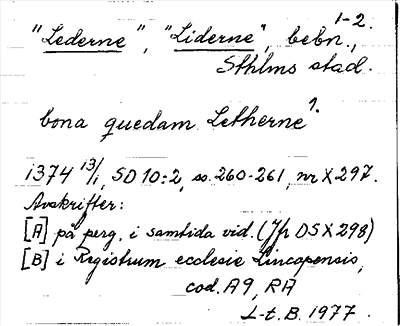 1-2.
"Lederne", "Liderne", bebn.,
Sthlms stad.
bona quedam Letherne 1.
1374 13/1, SD 10:2, ss. 260-261, nr X 297.
Avskrifter:
[A] på perg. i samtida vid. (Jfr DS X 298)
[B] i Registrum ecclesie Lincopensis,
cod. A9, RA
L-t. B. 1977.